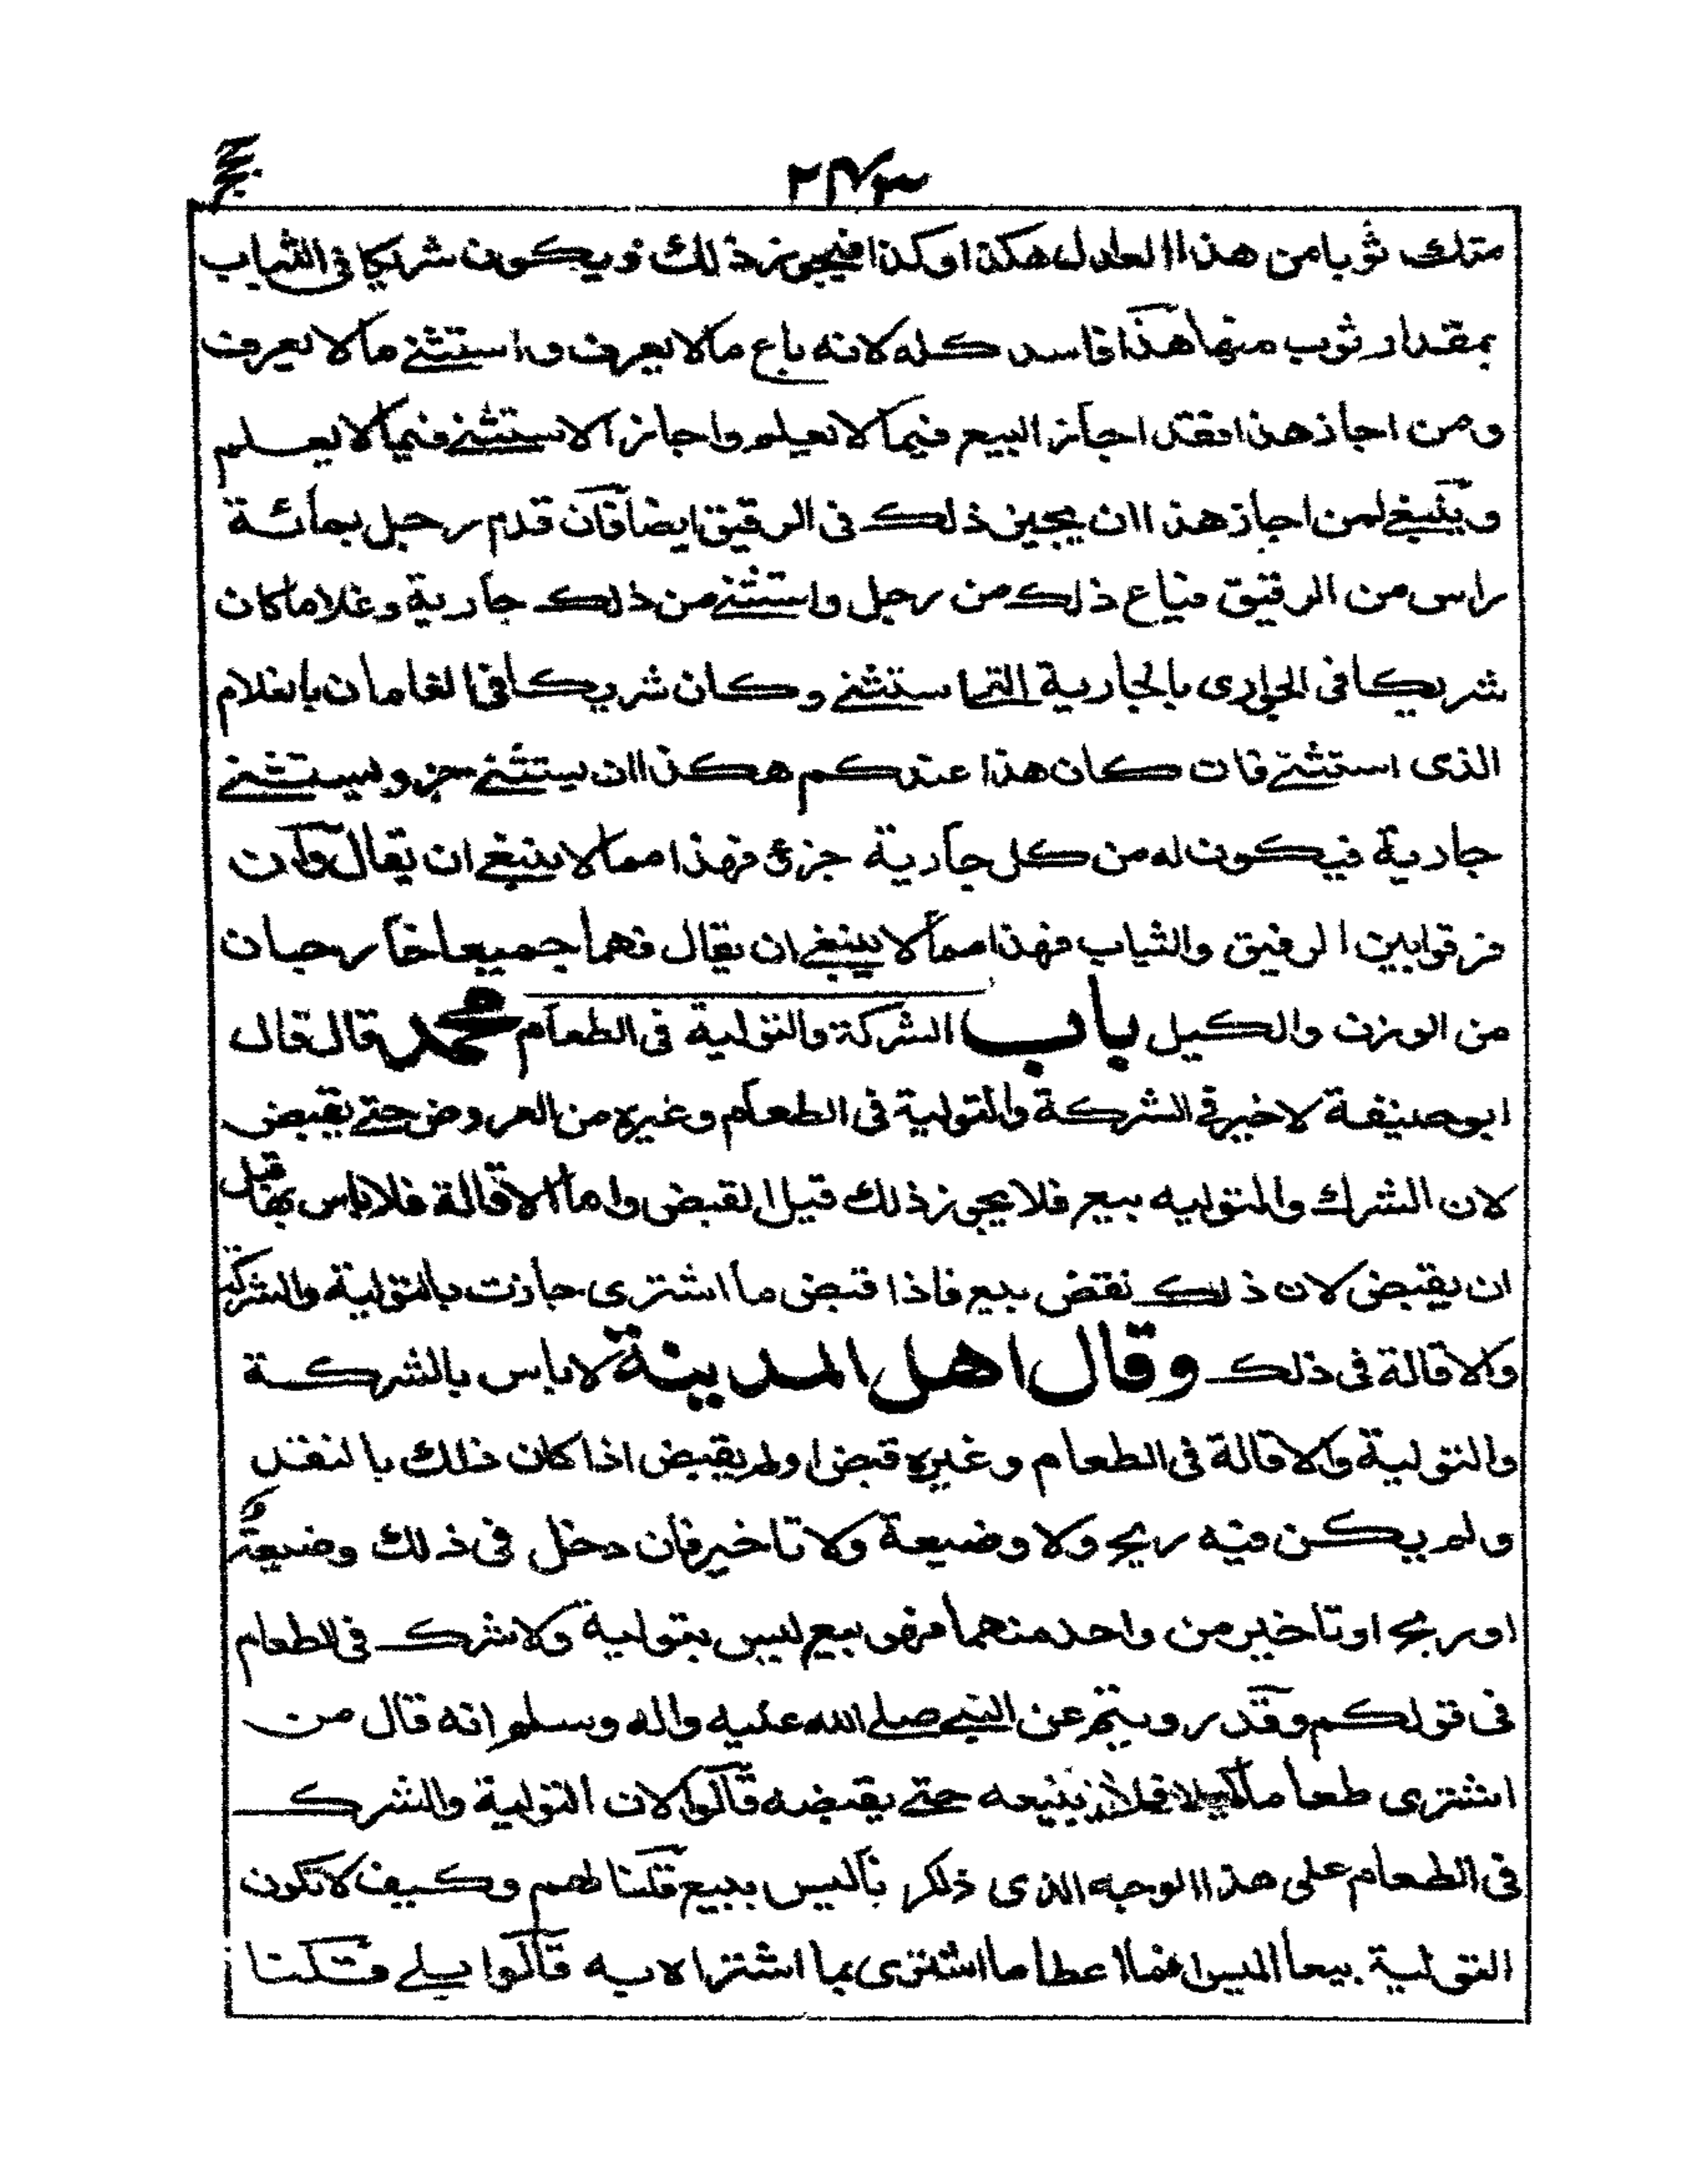 ٢٤٣
منك ثوبا من هذا العدل هكذا وكذا فيجوز ذلك ويكون شريكا فى الثياب
بمقدار ثوب منها هذا فاسد كله لانه باع مالا يعرف واستثنے مالا يعرف
ومن اجاز هذا فقد اجاز البيع فيما لا يعلم واجاز الاستثنے فيما لا يعلم
وينبغے لمن اجاز هذا ان يجيز ذلك فى الرقيق ايضا فان قدم رجل بمائة
راس من الرقيق فباع ذلك من رجل واستثنے من ذلك جارية وغلاما كان
شريكا فى الجوارى بالجارية التے استثنے وكان شريكا فى الغلمان بالغلام
الذى استثنے فان كان هذا عندكم هكذا ان يستثنے جزو ويستثنے
جارية فيكون له من كل جارية جزئ فهذا مما لا ينبغے ان يقال وان
فرقوا بين الرقيق والثياب فهذا مما لا ينبغے ان يقال فهما جميعا خارجان
من الوزن والكيل باب الشركة والتولية فى الطعام محمد قال قال
ابو حنيفة لا خير فى الشركة والتولية فى الطعام وغيره من العروض حتے يقبض
لان الشرك والتوليه بيع فلا يجوز ذلك قبل القبض واما الاقالة فلا باس بها قبل
ان يقبض لان ذلك نقض بيع فاذا قبض ما اشترى جازت بالتولية والشركة
والاقالة فى ذلك وقال اهل المدينة لا باس بالشركة
والتولية والاقالة فى الطعام وغيره قبض او لم يقبض اذا كان ذلك بالنقد
ولم يكن فيه ربح ولا وضيعة ولا تاخير فان دخل فى ذلك وضيعة
او ربح او تاخير من واحد منهما فهو بيع ليس بتولية ولا شرك فى الطعام
فى قولكم وقد رويتم عن النبے صلے الله عليه واله وسلم انه قال من
اشترى طعاما فلا يبيعه حتے يقبضه قالوا لان التولية والشرك
فى الطعام على هذا الوجه الذى ذكر ناليس ببيع قلنا لهم وكيف لا تكون
التولية بيعا اليس انما اعطا ما اشترى بما اشتراه به قالوا بلے قلنا